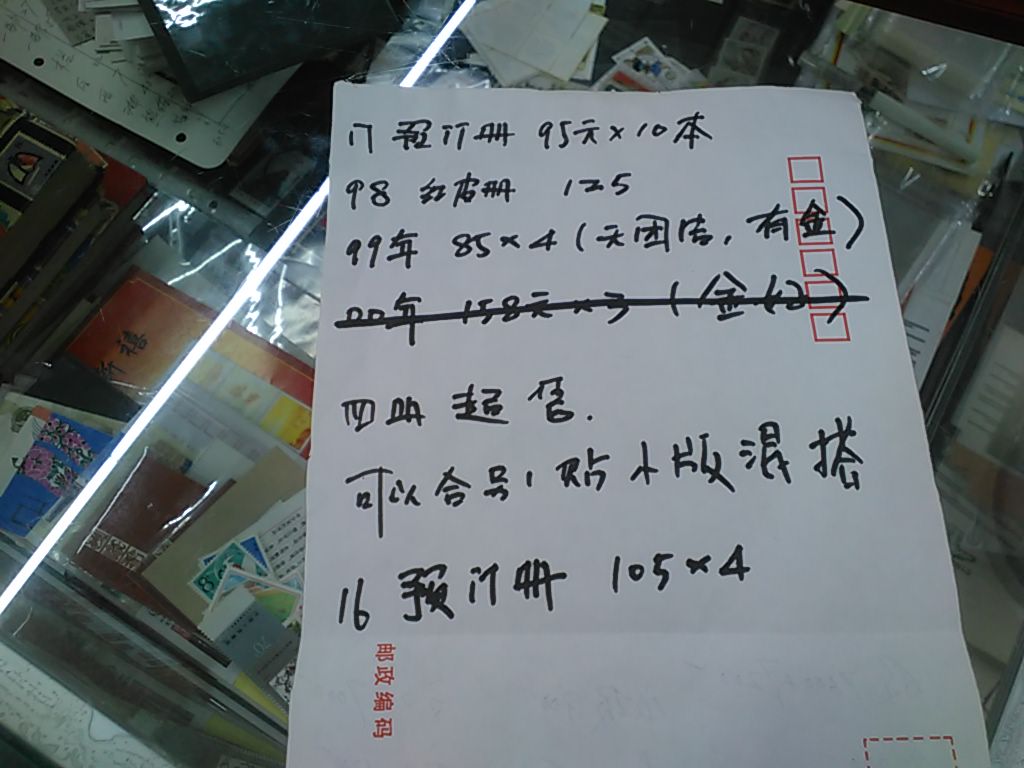 17 预订册 95元×10本
98 红皮册 125
99年 85×4(无团洁,有金)
00年 158元×3(金红)
四册起售.
可以合号,贴小版混搭
16 预订册 105×4
邮政编码